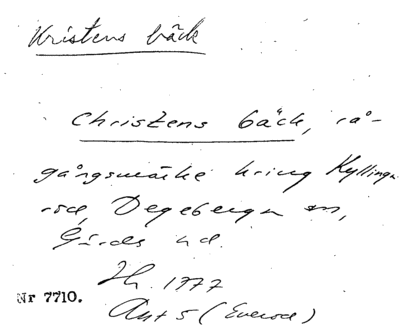 Kristens bäck
Christens bäck, rå-
gångsmärke kring Kyllinga-
röd, Degeberga sn,
Gärds hd.
Jh. 1777
Nr 7710.
Akt 5 (Everöd)